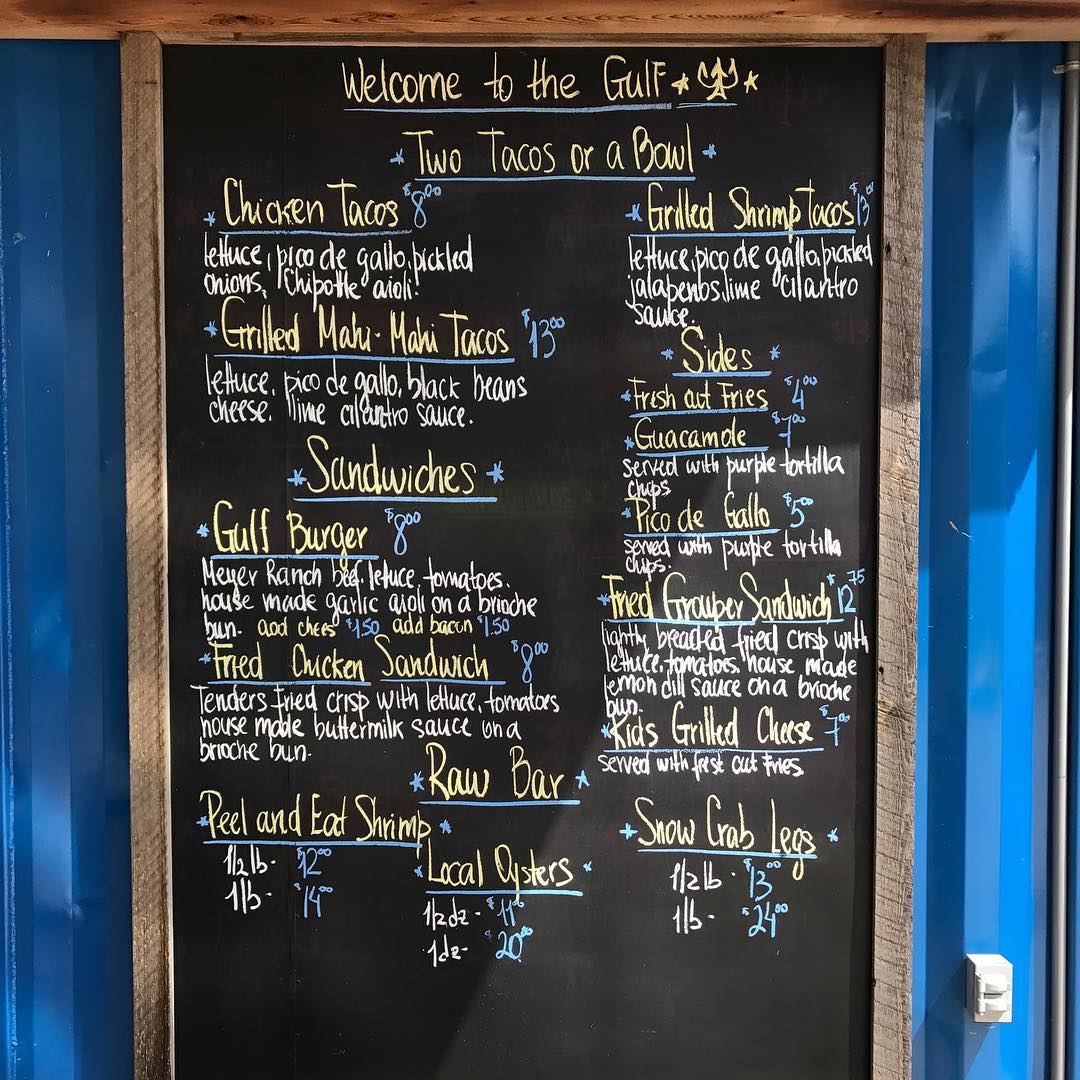 Welcome to the Gulf
Two Tacos or a Bowl
Chicken Tacos $8.00
lettuce, pico de gallo, pickled
onions, Chipotle aioli.
Grilled Mahi-Mahi Tacos $13.00
lettuce, pico de gallo, black beans
cheese, lime cilantro sauce.
Grilled Shrimp Tacos $13.00
lettuce, pico de gallo, pickled
jalapenos, lime cilantro
sauce.
Sides
Fresh cut Fries $4.00
Guacamole $7.00
served with purple tortilla
chips
Pico de Gallo $5.00
served with purple tortilla
chips.
Sandwiches
Gulf Burger $8.00
Meyer Ranch beef, lettuce, tomatoes,
house made garlic aioli on a brioche
bun. add chees $1.50 add bacon $1.50
Fried Chicken Sandwich $8.00
Tenders fried crisp with lettuce, tomatoes
house made buttermilk sauce on a
brioche bun.
Fried Grouper Sandwich $12.75
lightly breaded fried crisp with
lettuce, tomatoes, house made
lemon dill sauce on a brioche
bun.
Kids Grilled Cheese $7.00
served with fresh cut Fries.
Raw Bar
Peel and Eat Shrimp
1/2 lb - $12.00
1 lb - $14.00
Local Oysters
1/2 dz - $11.00
1 dz - $20.00
Snow Crab Legs
1/2 lb - $13.00
1 lb - $24.00